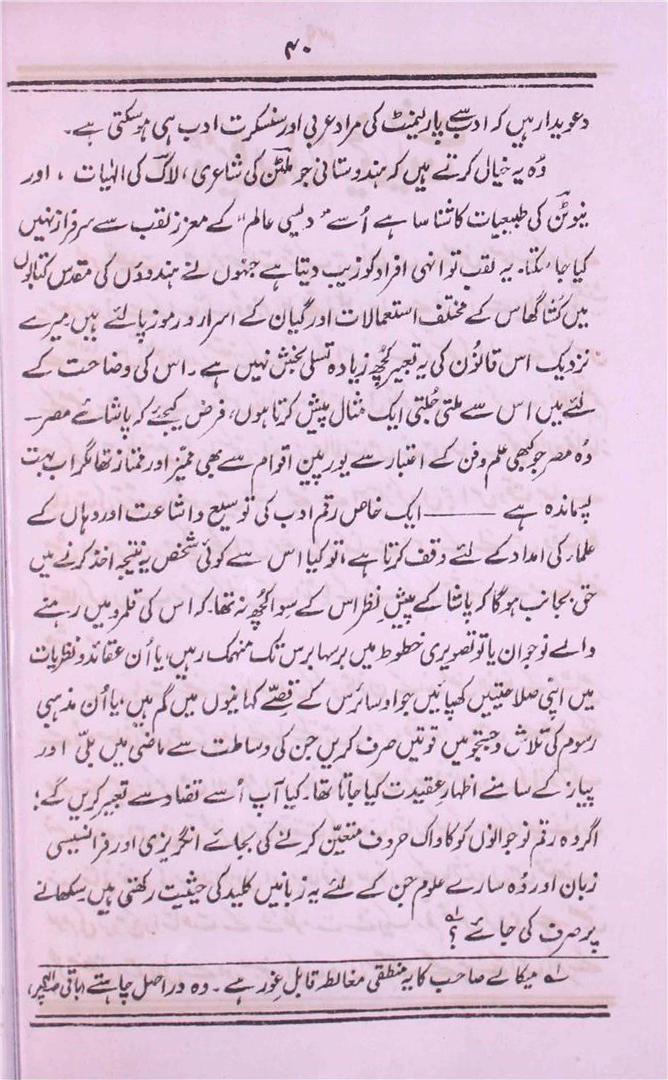 ۴۰
دعویدار ہیں کہ ادب سے پارلیمنٹ کی مراد عربی اور سنسکرت ادب ہی ہو سکتی ہے۔
وُہ یہ خیال کرتے ہیں کہ ہندوستانی جو ملٹن کی شاعری، لاک کی الٰہیات، اور
نیوٹن کی طبیعیات کا شناسا ہے اُسے "دیسی عالم" کے معزز لقب سے سرفراز نہیں
کیا جا سکتا۔ یہ لقب تو انہی افراد کو زیب دیتا ہے جنہوں نے ہندوؤں کی مقدس کتابوں
میں کُشا گھاس کے مختلف استعمالات اور گیان کے اسرار و رموز پا لئے ہیں میرے
نزدیک اس قانُون کی یہ تعبیر کچُھ زیادہ تسلی بخش نہیں ہے۔ اس کی وضاحت کے
لئے میں اس سے ملتی جُلتی ایک مثال پیش کرتا ہوں، فرض کیجئے کہ پاشائے مصر —
وُہ مصر جو کبھی علم و فن کے اعتبار سے یورپین اقوام سے بھی ممیّز اور ممتاز تھا مگر اب بہت
پسماندہ ہے ——— ایک خاص رقم ادب کی توسیع و اشاعت اور وہاں کے
علماء کی امداد کے لئے وقف کرتا ہے، تو کیا اس سے کوئی شخص یہ نتیجہ اخذ کرنے میں
حق بجانب ہو گا کہ پاشا کے پیشِ نظر اس کے سوا کچُھ نہ تھا۔ کہ اس کی قلمرو میں رہنے
والے نوجوان یا تو تصویری خطوط میں برسہا برس تک منہمک رہیں، یا اُن عقائد و نظریات
میں اپنی صلاحیتیں کھپائیں جو اوسائرس کے قِصّے کہانیوں میں گم ہیں، یا اُن مذہبی
رسوم کی تلاش و جستجو میں قوتیں صرف کریں جن کی وساطت سے ماضی میں بلّی اور
پیاز کے سامنے اظہارِ عقیدت کیا جاتا تھا۔ کیا آپ اُسے تضاد سے تعبیر کریں گے؛
اگر وہ رقم نوجوانوں کو کاواک حروف متعیّن کرنے کی بجائے انگریزی اور فرانسیسی
زبان اور وُہ سارے علوم جن کے لئے یہ زبانیں کلید کی حیثیت رکھتی ہیں سکھانے
پر صرف کی جائے؟ لہ
لہ میکالے صاحب کا یہ منطقی مغالطہ قابلِ غور ہے۔ وہ دراصل چاہتے (باقی صفحہ پر)